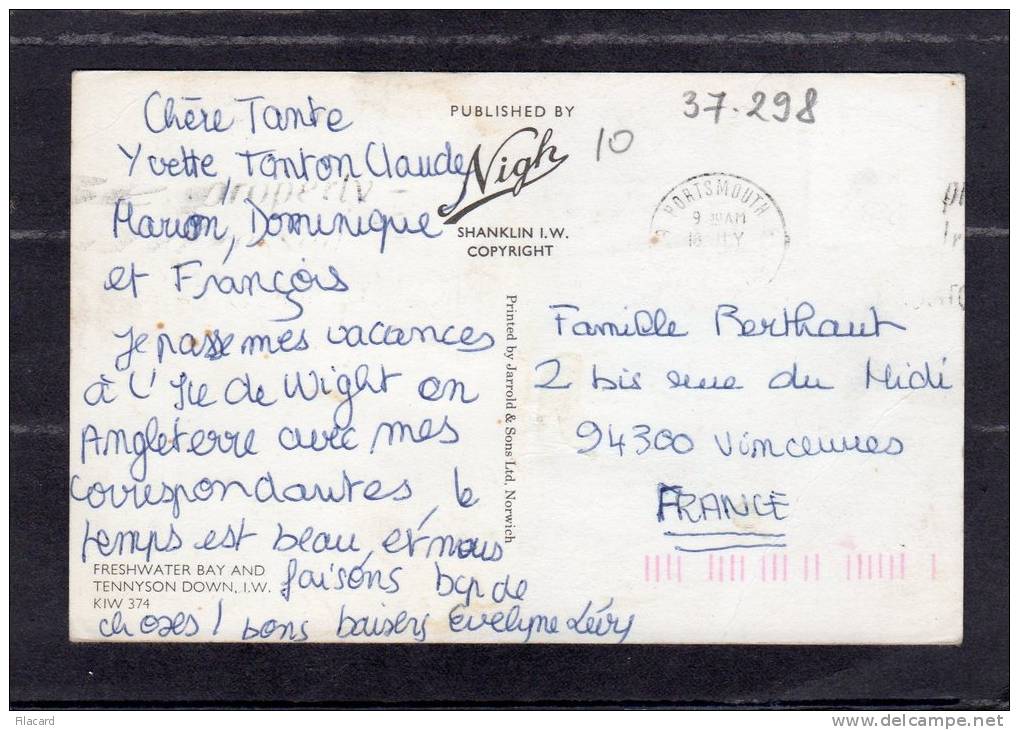 Chère Tante
Yvette, Tonton Claude
Marion, Dominique
et François
Je passe mes vacances
à l'Ile de Wight en
Angleterre avec mes
correspondantes, le
temps est beau, et nous
faisons bcp de
choses! bons baisers Evelyne Lévy
FRESHWATER BAY AND
TENNYSON DOWN, I.W.
KIW 374
PUBLISHED BY
Nigh
SHANKLIN I.W.
COPYRIGHT
Printed by Jarrold & Sons Ltd, Norwich
10
37-298
PORTSMOUTH
property
Famille Berthaut
2 bis rue du Midi
94300 Vincennes
FRANCE
Filacard
www.delcampe.net